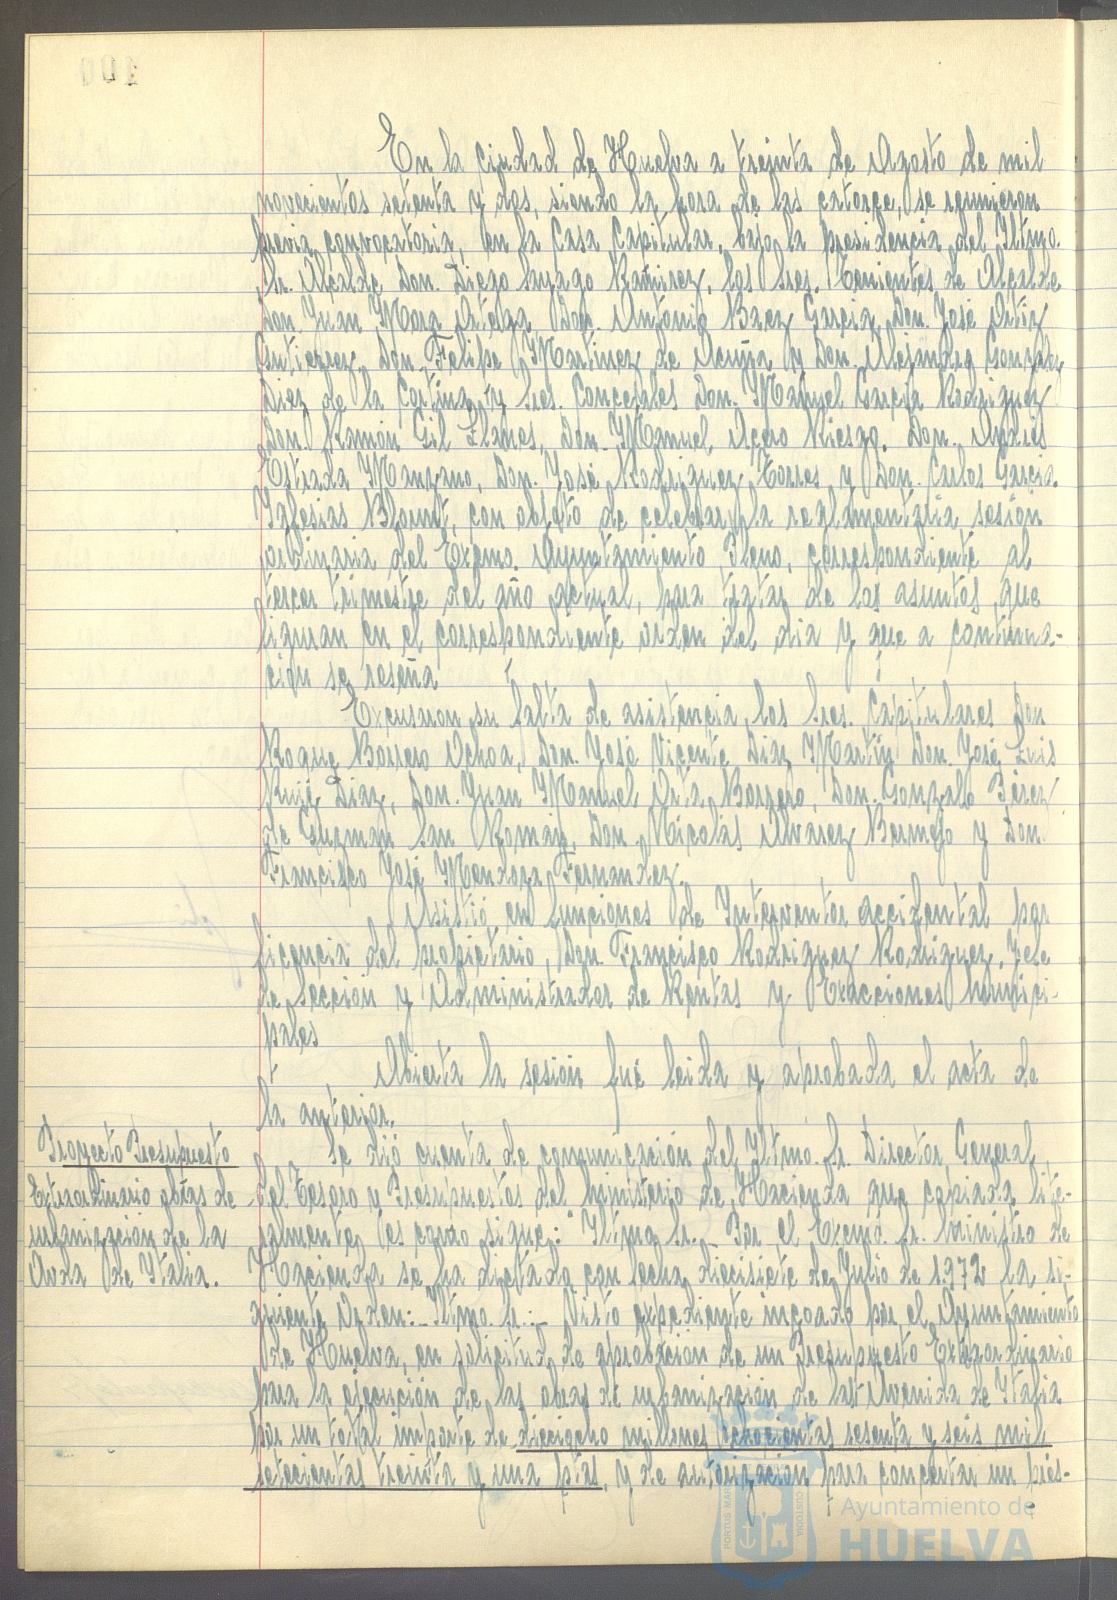 En la ciudad de Huelva a treinta de Agosto de mil
novecientos setenta y dos, siendo la hora de las catorce, se reunieron
previa convocatoria, en la Casa Capitular, bajo la presidencia del Iltmo.
Sr. Alcalde Don Diego Sayago Ramirez, los Sres. Tenientes de Alcalde
Don Juan Mora Ortega, Don Antonio Baez Garcia, Don José Ortiz
Gutierrez, Don Felipe Martinez de Acuña y Don Alejandro Gonzalez
Diaz de la Cortina y Sres. Concejales Don Manuel Garcia Rodriguez
Don Ramón Gil Llanes, Don Manuel Acero Riesgo, Don
Estrada Manzano, Don José Rodriguez Torres y Don Carlos Garcia
Iglesias Blount, con objeto de celebrar la reglamentaria sesión
ordinaria del Excmo. Ayuntamiento Pleno, correspondiente al
tercer trimestre del año actual, para tratar de los asuntos que
figuran en el correspondiente orden del dia y que a continua-
ción se reseña
Excusaron su falta de asistencia los Sres. Capitulares Don
Roque Borrero Ochoa, Don José Vicente Diaz Martin, Don José Luis
Ruiz Diaz, Don Juan Manuel Orta Borrero, Don Gonzalo Pérez
de Guzman San Román, Don Nicolás Alvarez Bermejo y Don
Francisco José Mendoza Fernandez.
Asistió en funciones de Interventor accidental por
licencia del propietario, Don Francisco Rodriguez Rodriguez, Jefe
de Sección y Administrador de Rentas y Exacciones Munici-
pales
Abierta la sesión fué leida y aprobada el acta de
la anterior.
Proyecto Presupuesto
Extraordinario obras de
urbanización de la
Avda de Italia.
Se dió cuenta de comunicación del Iltmo. Sr. Director General
del Tesoro y Presupuestos del Ministerio de Hacienda que copiada lite-
ralmente es como sigue: "Iltmo. Sr. Por el Excmo. Sr. Ministro de
Hacienda se ha dictado con fecha diecisiete de Julio de 1.972 la si-
guiente Orden:- Iltmo. Sr:- Visto expediente incoado por el Ayuntamiento
de Huelva, en solicitud de aprobación de un Presupuesto Extraordinario
para la ejecución de las obras de urbanización de la Avenida de Italia
por un total importe de dieciocho millones ochocientas sesenta y seis mil
setecientas treinta y una ptas, y de autorización para concertar un prés-
PORTUS MARIS
CUSTODIA
Ayuntamiento de
HUELVA